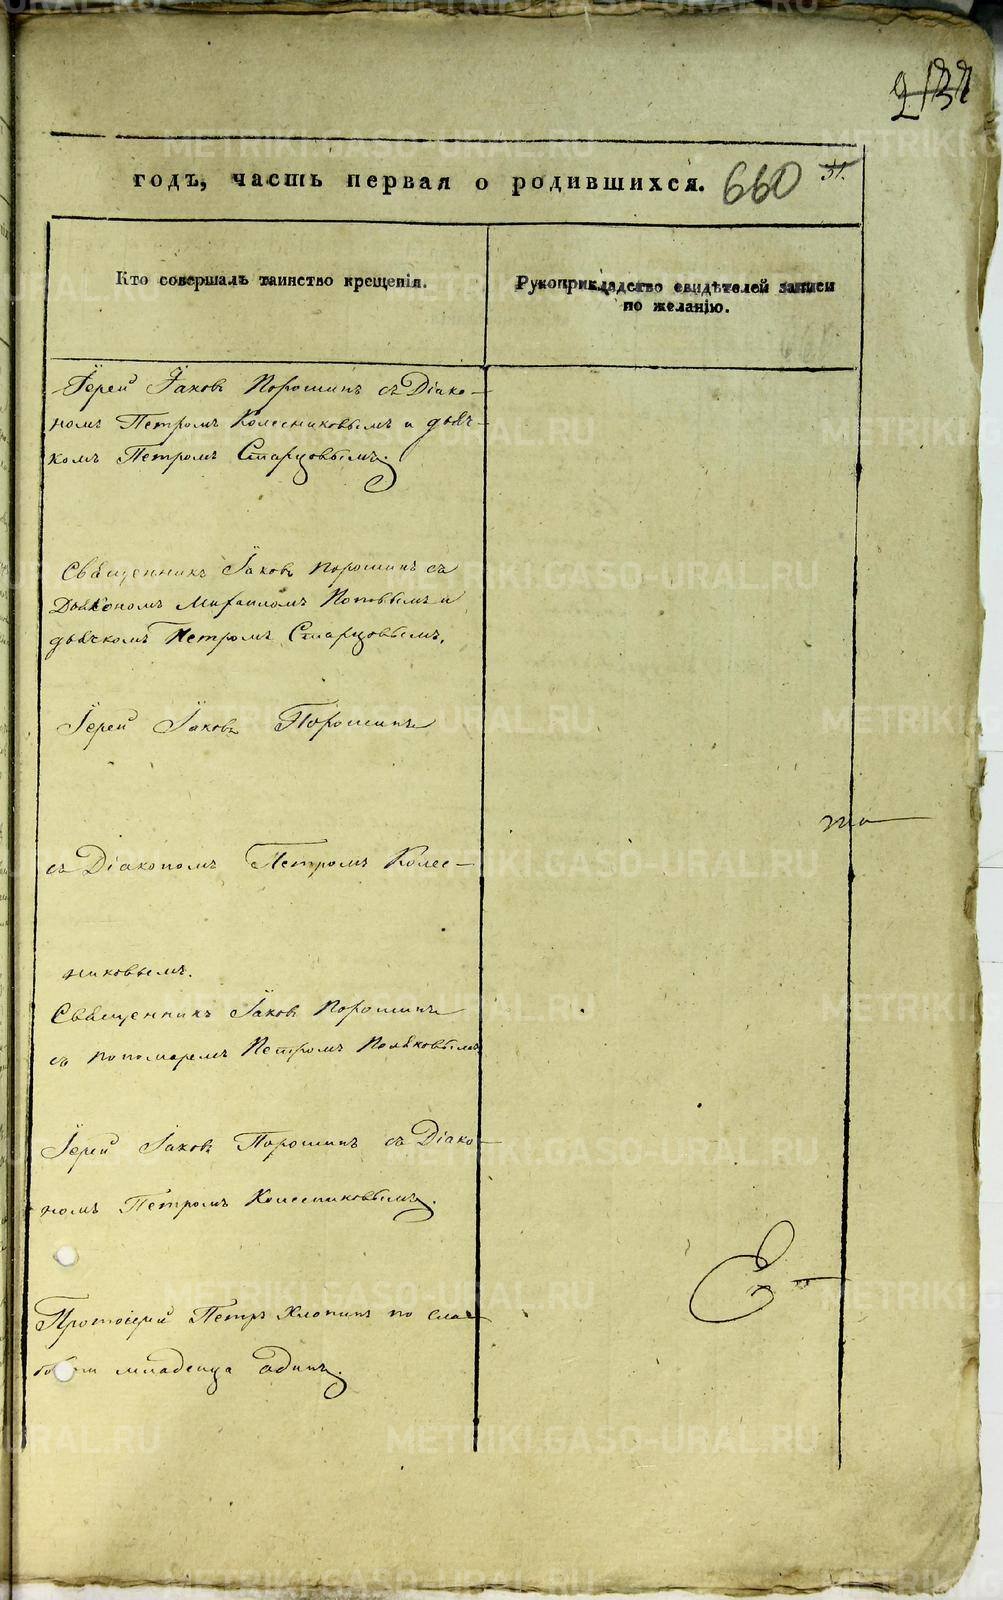 годъ, часть первая о родившихся. 660 31.
Кто совершалъ таинство крещенія.
Рукоприкладство свидѣтелей записи
по желанію.
Іерей Іаковъ Порошинъ съ Діако-
номъ Петромъ Колесниковымъ и дьяч-
комъ Петромъ Старцовымъ.
Священникъ Іаковъ Порошинъ съ
Дьякономъ Михаиломъ Поповымъ и
дьячкомъ Петромъ Старцовымъ.
Іерей Іаковъ Порошинъ
съ Діакономъ Петромъ Колес-
никовымъ.
Священникъ Іаковъ Порошинъ
съ пономаремъ Петромъ Поляковымъ
Іерей Іаковъ Порошинъ съ Діако-
номъ Петромъ Колесниковымъ.
Протоіерей Петръ Хлопинъ по сла-
бости младенца одинъ.
METRIKI.GASO-URAL.RU